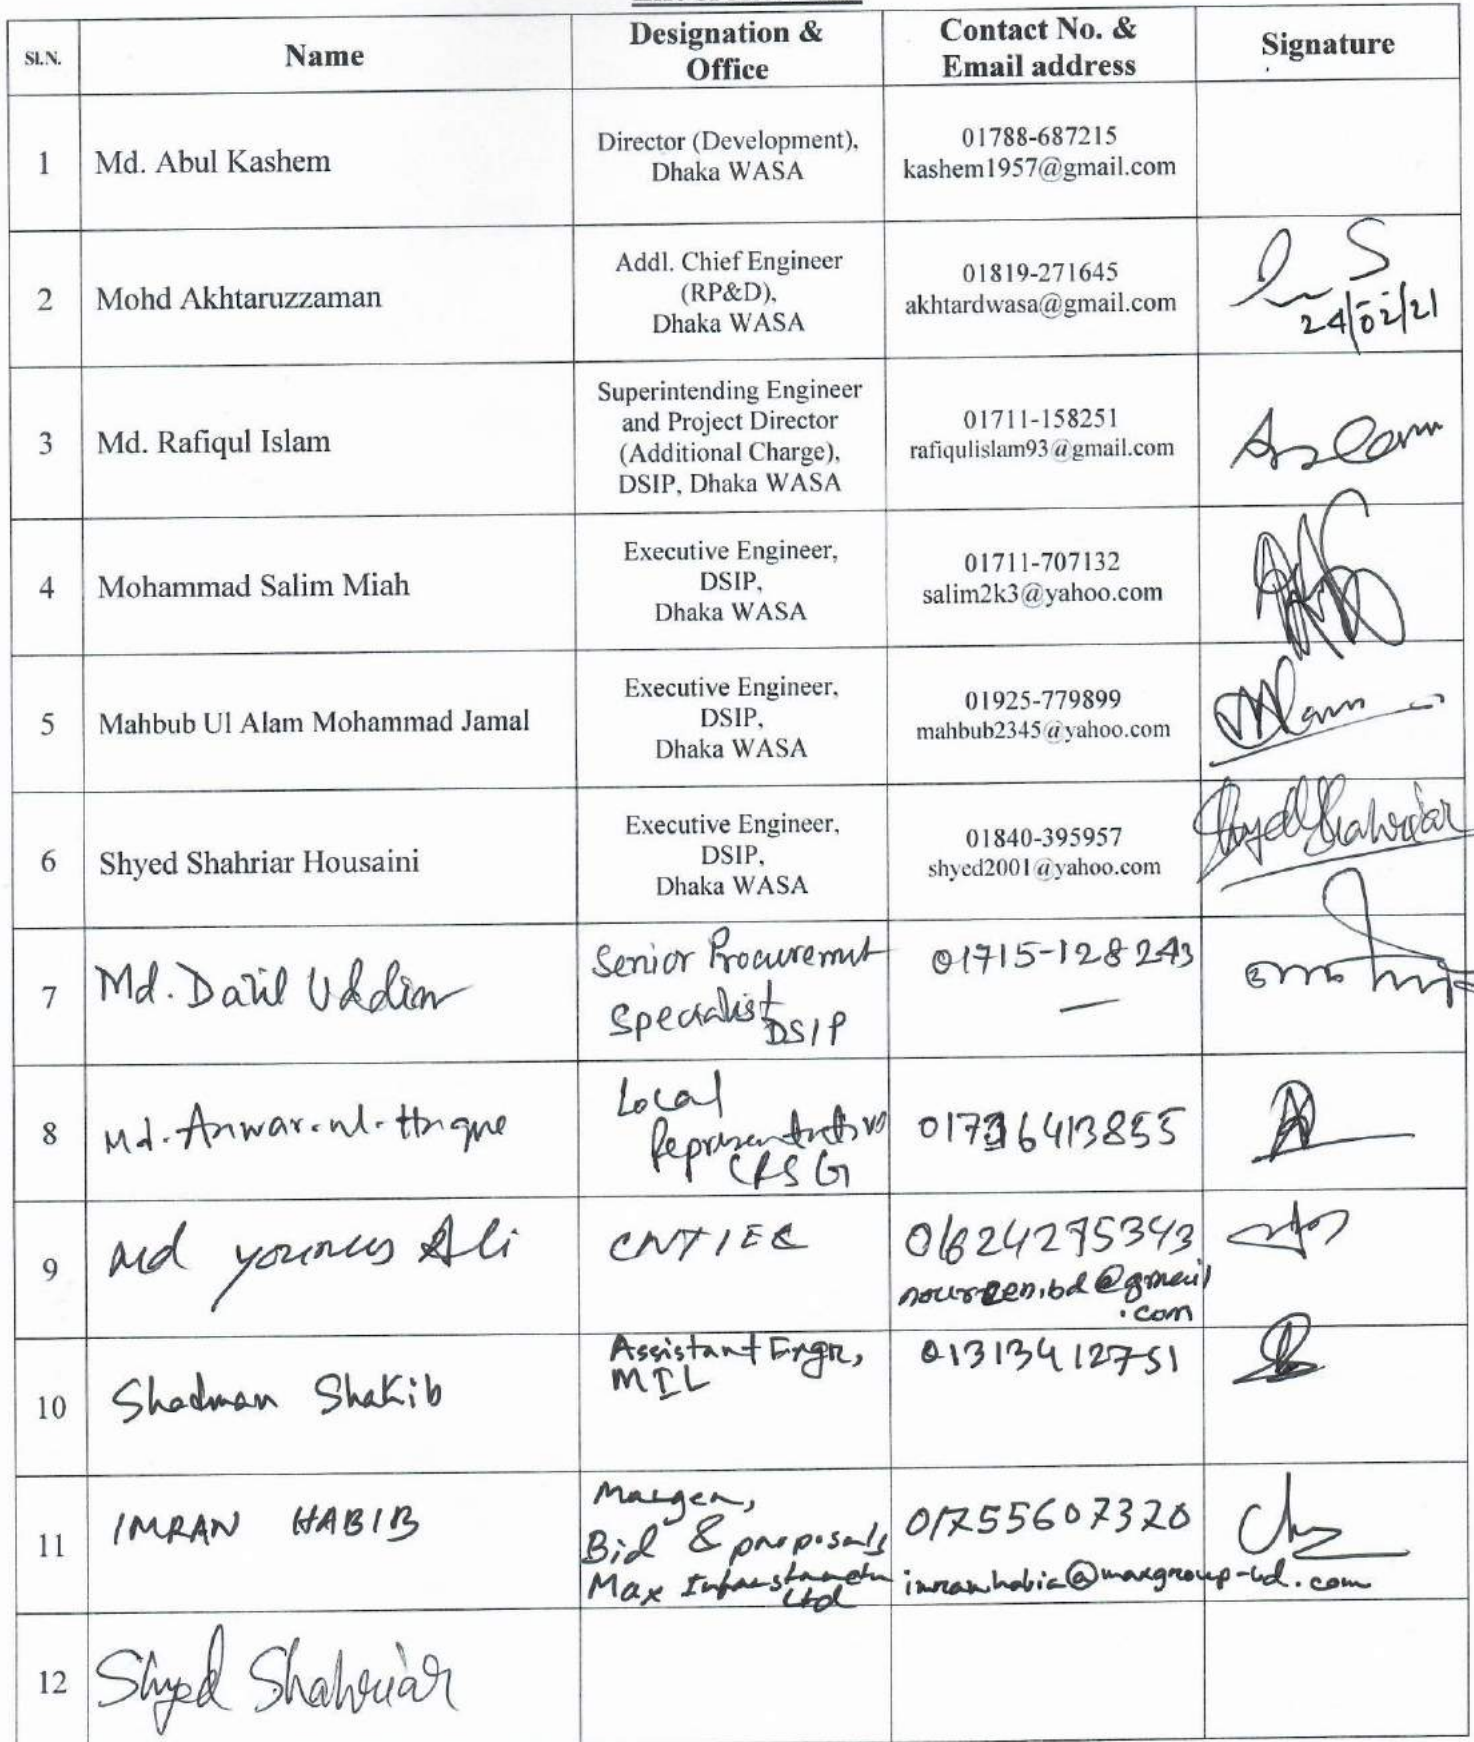 Sl.N.
Name
Designation &
Office
Contact No. &
Email address
Signature
1
Md. Abul Kashem
Director (Development),
Dhaka WASA
01788-687215
kashem1957@gmail.com
2
Mohd Akhtaruzzaman
Addl. Chief Engineer
(RP&D),
Dhaka WASA
01819-271645
akhtardwasa@gmail.com
24/02/21
3
Md. Rafiqul Islam
Superintending Engineer
and Project Director
(Additional Charge),
DSIP, Dhaka WASA
01711-158251
rafiqulislam93@gmail.com
4
Mohammad Salim Miah
Executive Engineer,
DSIP,
Dhaka WASA
01711-707132
salim2k3@yahoo.com
5
Mahbub Ul Alam Mohammad Jamal
Executive Engineer,
DSIP,
Dhaka WASA
01925-779899
mahbub2345@yahoo.com
6
Shyed Shahriar Housaini
Executive Engineer,
DSIP,
Dhaka WASA
01840-395957
shyed2001@yahoo.com
Shyed Shahriar
7
Md. Uddin
Senior Procurement
Specialist
DSIP
01715-128243
8
Md. Anwar-ul-Haque
Local
Representative
9
Md Younus Ali
CNTIEC
01624275343
10
Shadman Shakib
Assistant Engr,
MIL
01313412751
11
IMRAN HABIB
Bid & proposals
Max Ltd
01755607320
12
Shyed Shahriar